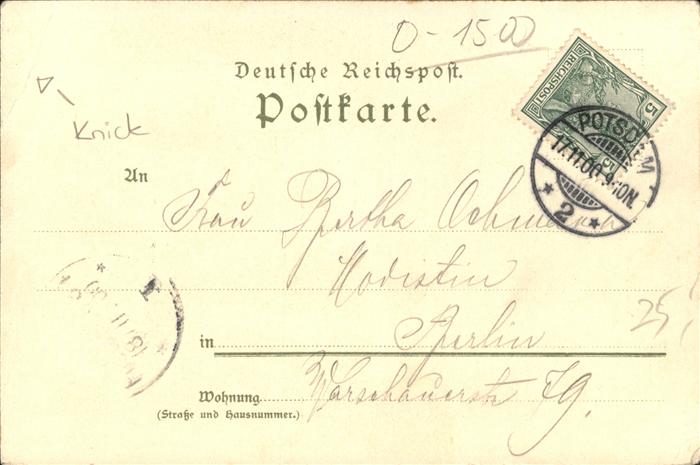 0-1500
Deutsche Reichspost.
Postkarte.
Knick
REICHSPOST
5
POTSDAM
17.11.00. 9-10N.
* 2 *
An
Frau Bertha Ochmann
Modistin
in Berlin
25
Wohnung Warschauerstr 79.
(Straße und Hausnummer.)